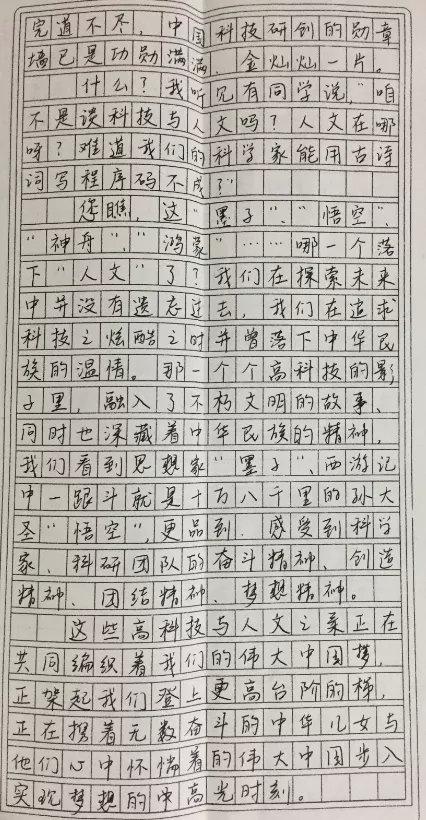 完道不尽，中国科技研创的勋章
墙已是功勋满满，金灿灿一片。
什么？我听见有同学说，“咱
不是谈科技与人文吗？人文在哪
呀？难道我们的科学家能用古诗
词写程序码不成？”
您瞧，这“墨子”、“悟空”、
“神舟”、“鸿蒙”……哪一个落
下“人文”了？我们在探索未来
中并没有遗忘过去，我们在追求
科技之炫酷之时并曾落下中华民
族的温情。那一个个高科技的影
子里，融入了不朽文明的故事、
同时也深藏着中华民族的精神，
我们看到思想家“墨子”、西游记
中一跟斗就是十万八千里的孙大
圣“悟空”，更品到、感受到科学
家、科研团队的奋斗精神、创造
精神、团结精神、梦想精神。
这些高科技与人文之美正在
共同编织着我们的伟大中国梦，
正架起我们登上更高台阶的梯，
正在携着无数奋斗的中华儿女与
他们心中怀揣着的伟大中国步入
实现梦想的中高光时刻。